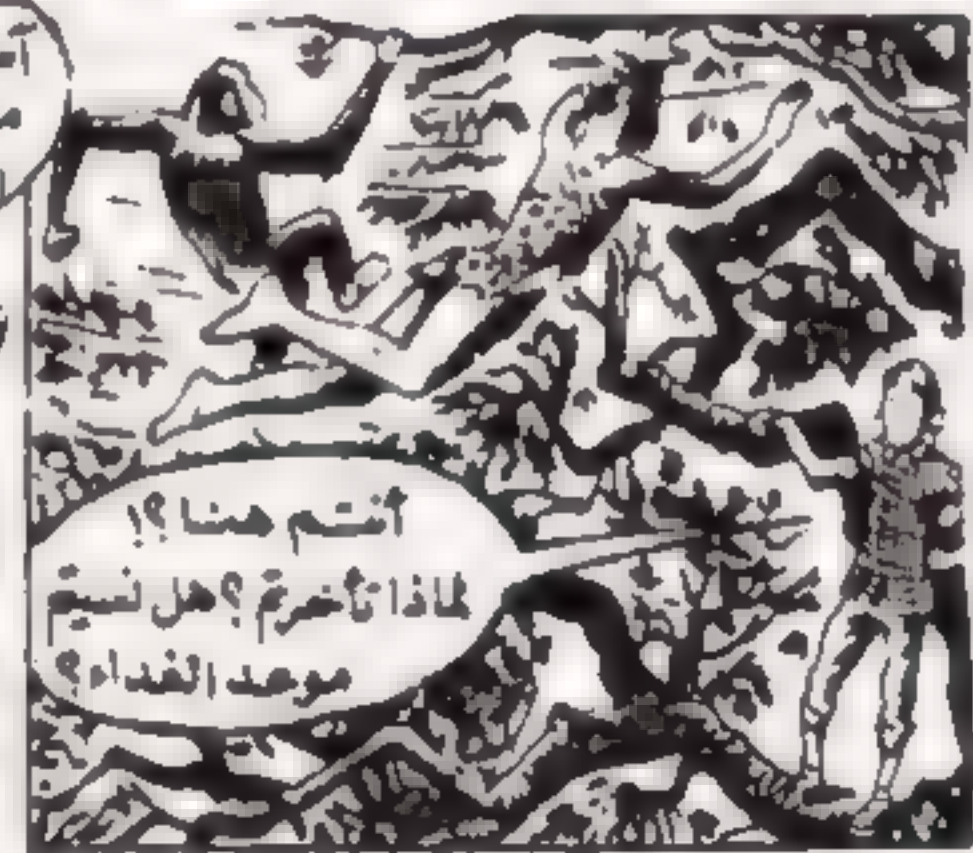 أنتم هنا ؟!
لماذا تأخرتم ؟ هل نسيتم
موعد الغداء ؟